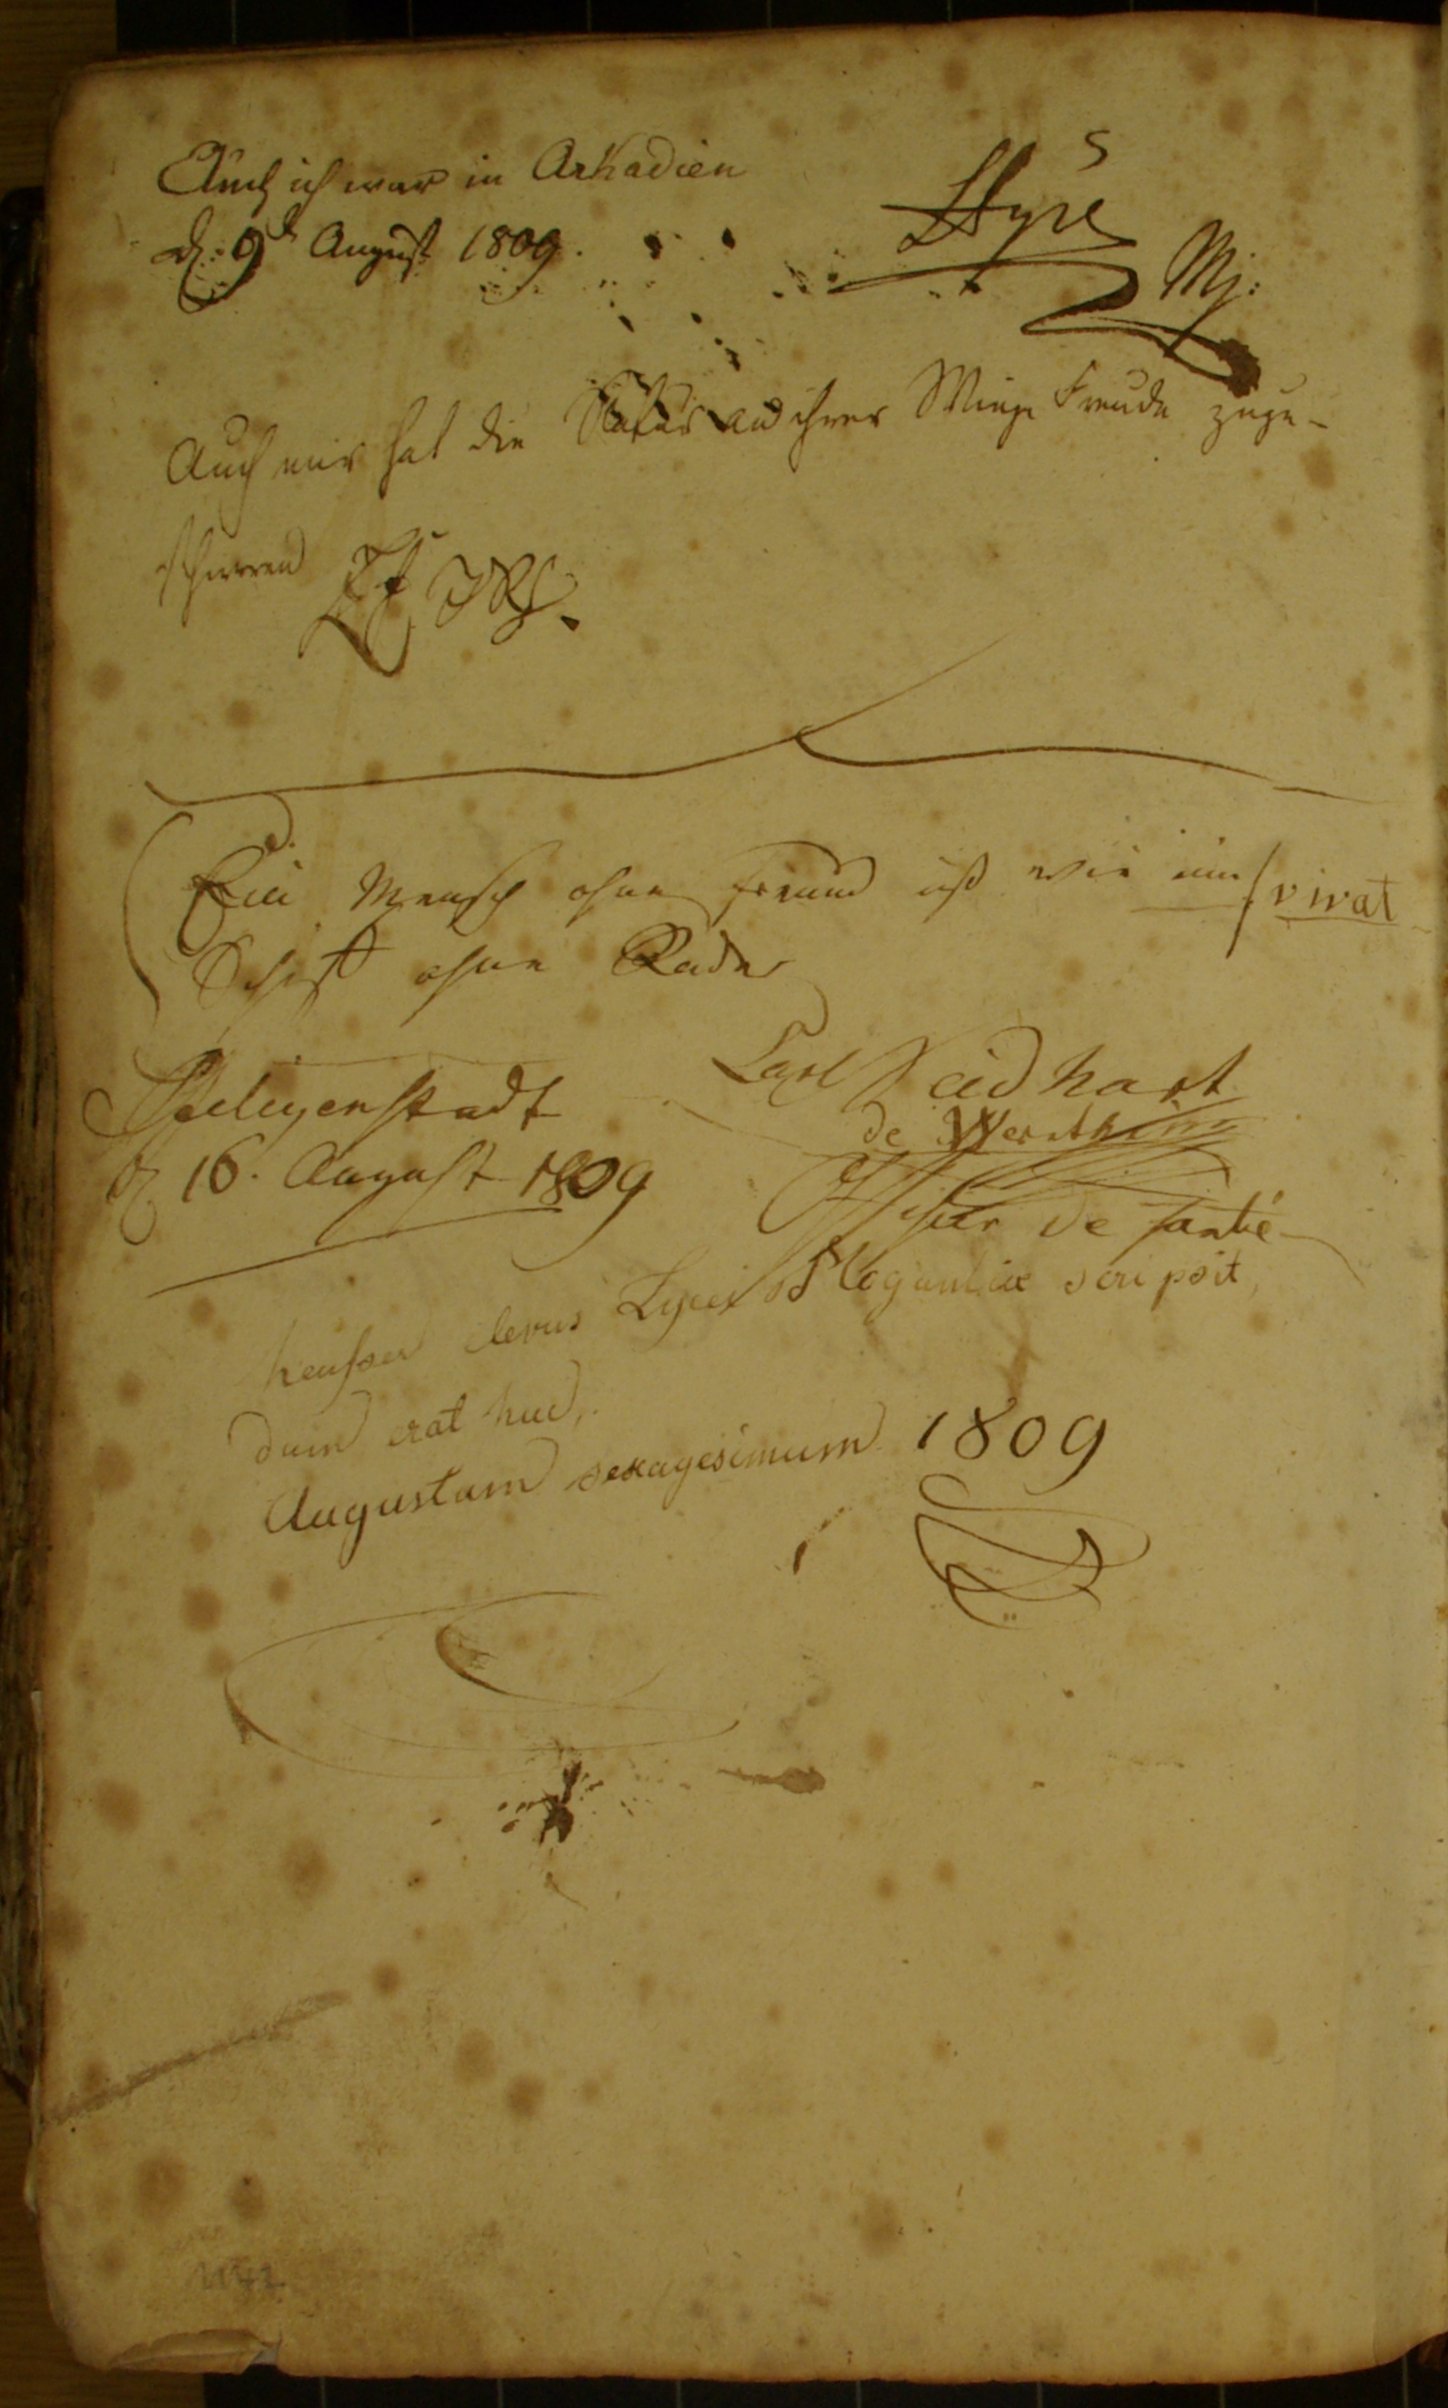 Auch ich war in Arkadien
d. 9t August 1809.
Mj:
Auch mir hat die Natur an ihrer Wiege Freude zuge-
schworen
Ein Mensch ohne Freund ist wie ein
vivat
Schiff ohne Ruder
Seeligenstadt
d 16. August 1809
Carl Neidhart
de Wertheim
officier de santé
heusser clerus Lycei Moguntiae scripsit,
dum erat hic,
Augustum sexagesimum 1809